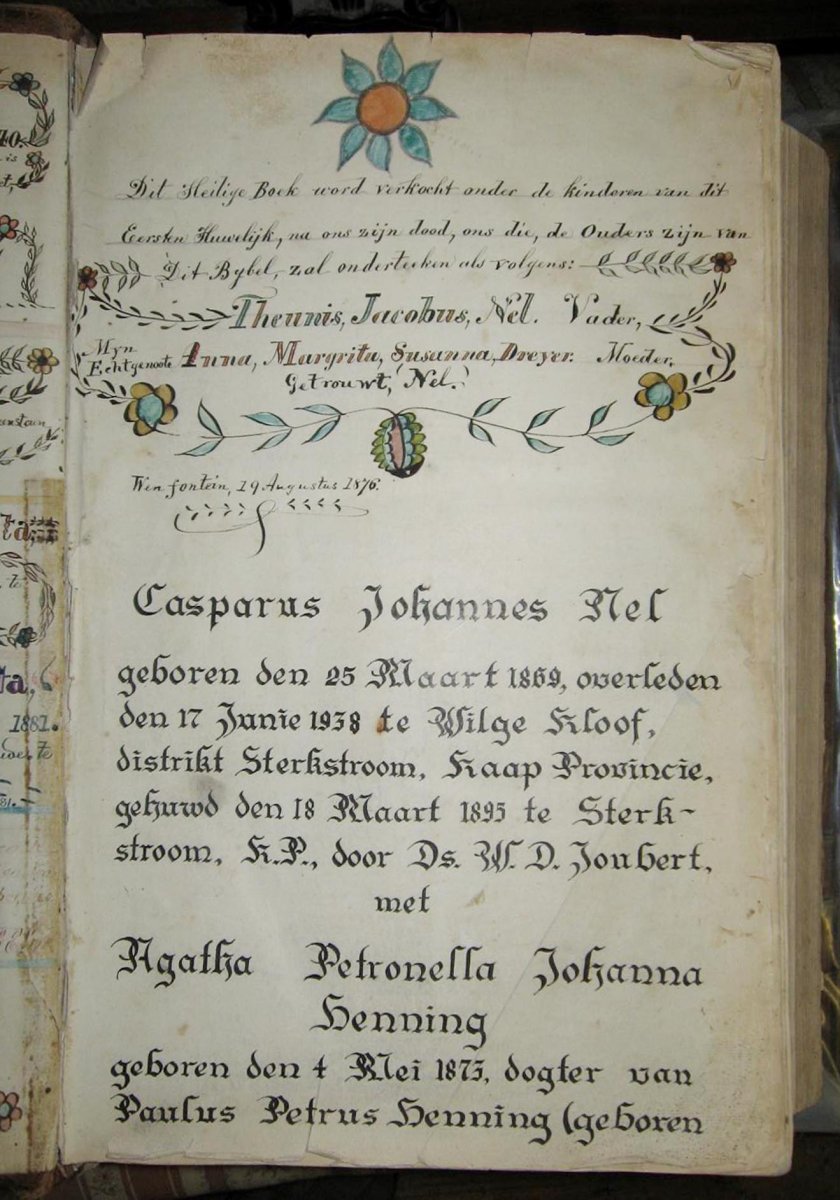 Dit Heilige Boek word verkocht onder de kinderen van dit
Eersten Huwelijk, na ons zijn dood, ons die, de Ouders zijn van
Dit Bybel, zal onderteeken als volgens:
Theunis, Jacobus, Nel. Vader,
Myn
Echtgenoote Anna, Margrita, Susanna, Dreyer. Moeder,
Getrouwt, Nel.
fontein, 19 Augustus 1876.
Casparus Johannes Nel
geboren den 25 Maart 1869, overleden
den 17 Junie 1938 te Wilge Kloof,
distrikt Sterkstroom, Kaap Provincie,
gehuwd den 18 Maart 1895 te Sterk-
stroom, K.P., door Ds. W. D. Joubert,
met
Agatha Petronella Johanna
Henning
geboren den 4 Mei 1873, dogter van
Paulus Petrus Henning (geboren
1881.